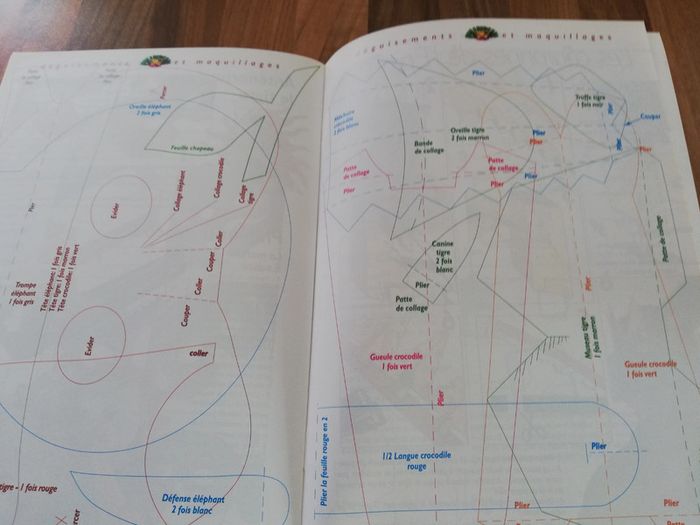 et maquillages
Percer
Oreille éléphant
2 fois gris
Feuille chapeau
Collage éléphant
Collage crocodile
Collage
tigre
Evider
Plier
Tête éléphant: 1 fois gris
Tête tigre: 1 fois marron
Tête crocodile: 1 fois vert
Trompe
éléphant
1 fois gris
Couper
Coller
Couper
Coller
Evider
coller
tigre - 1 fois rouge
Défense éléphant
2 fois blanc
guisements
et maquillages
Plier
Mâchoire
crocodile
2 fois blanc
Truffe tigre
1 fois noir
Plier
Couper
Oreille tigre
2 fois marron
Bande
de collage
Plier
Plier
Plier
Plier
Patte
de collage
Patte
de collage
Plier
Plier
Plier
Patte de collage
Canine
tigre
2 fois
blanc
Plier
Patte
de collage
Plier
Museau tigre
1 fois marron
Gueule crocodile
1 fois vert
Gueule crocodile
1 fois vert
Plier
Plier la feuille rouge en 2
1/2 Langue crocodile
rouge
Plier
Plier
Plier